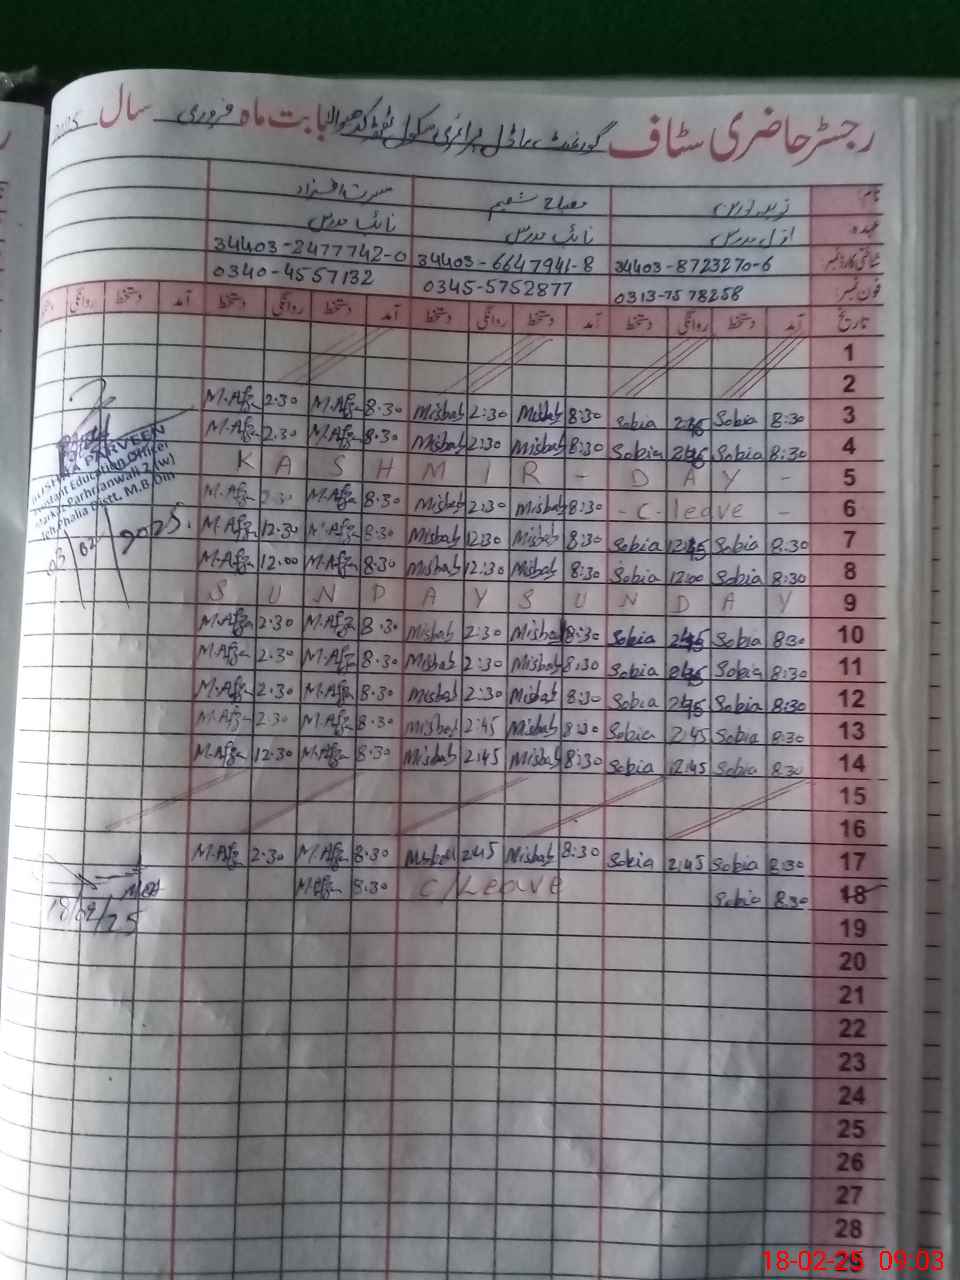 رجسٹر حاضری سٹاف گورنمنٹ ماڈل پرائمری سکول بابت ماہ فروری سال
نام
عہدہ نائب مدرس نائب مدرس
شناختی کارڈ نمبر 34403-8723270-6 34403-6647941-8 34403-2477742-0
فون نمبر 0313-7578258 0345-5752877 0340-4557132
تاریخ آمد دستخط روانگی دستخط آمد دستخط روانگی دستخط آمد دستخط روانگی دستخط آمد دستخط روانگی
1
2
3 8:30 Sobia Sobia 8:30 Misbah 2:30 Misbah 8.30 M.Afz 2.30 M.Afz
4 8:30 Sobia Sobia 8:30 Misbah 2:30 Misbah 8.30 M.Afz 2.30 M.Afz
5 KASHMIR - DAY -
6 - C-leave - 8:30 Misbah 2:30 Misbah 8.30 M.Afz 2.30 M.Afz
7 8:30 Sobia Sobia 8:30 Misbah 12:30 Misbah 8.30 M.Afz 12.30 M.Afz
8 8:30 Sobia 12:00 Sobia 8:30 Misbah 12:30 Misbah 8.30 M.Afz 12.00 M.Afz
9 SUNDAY SUNDAY
10 8:30 Sobia Sobia 8:30 Misbah 2:30 Misbah 8.30 M.Afz 2.30 M.Afz
11 8:30 Sobia Sobia 8:30 Misbah 2:30 Misbah 8.30 M.Afz 2.30 M.Afz
12 8:30 Sobia Sobia 8:30 Misbah 2:30 Misbah 8.30 M.Afz 2.30 M.Afz
13 8:30 Sobia 2:45 Sobia 8:30 Misbah 2:45 Misbah 8.30 M.Afz 2.30 M.Afz
14 8:30 Sobia 12:45 Sobia 8:30 Misbah 2:45 Misbah 8.30 M.Afz 12.30 M.Afz
15
16
17 8:30 Sobia 2:45 Sobia 8:30 Misbah 2:45 Misbah 8.30 M.Afz 2.30 M.Afz
18 8:30 Sobia C/Leave 8.30 M.Afz
19
20
21
22
23
24
25
26
27
28
29
PARVEEN
Assistant Education Officer
Markaz Pahrianwali 2 (W)
Teh Phalia Distt. M.B.Din
03/02/2025.
18/02/25
18-02-25 09:03